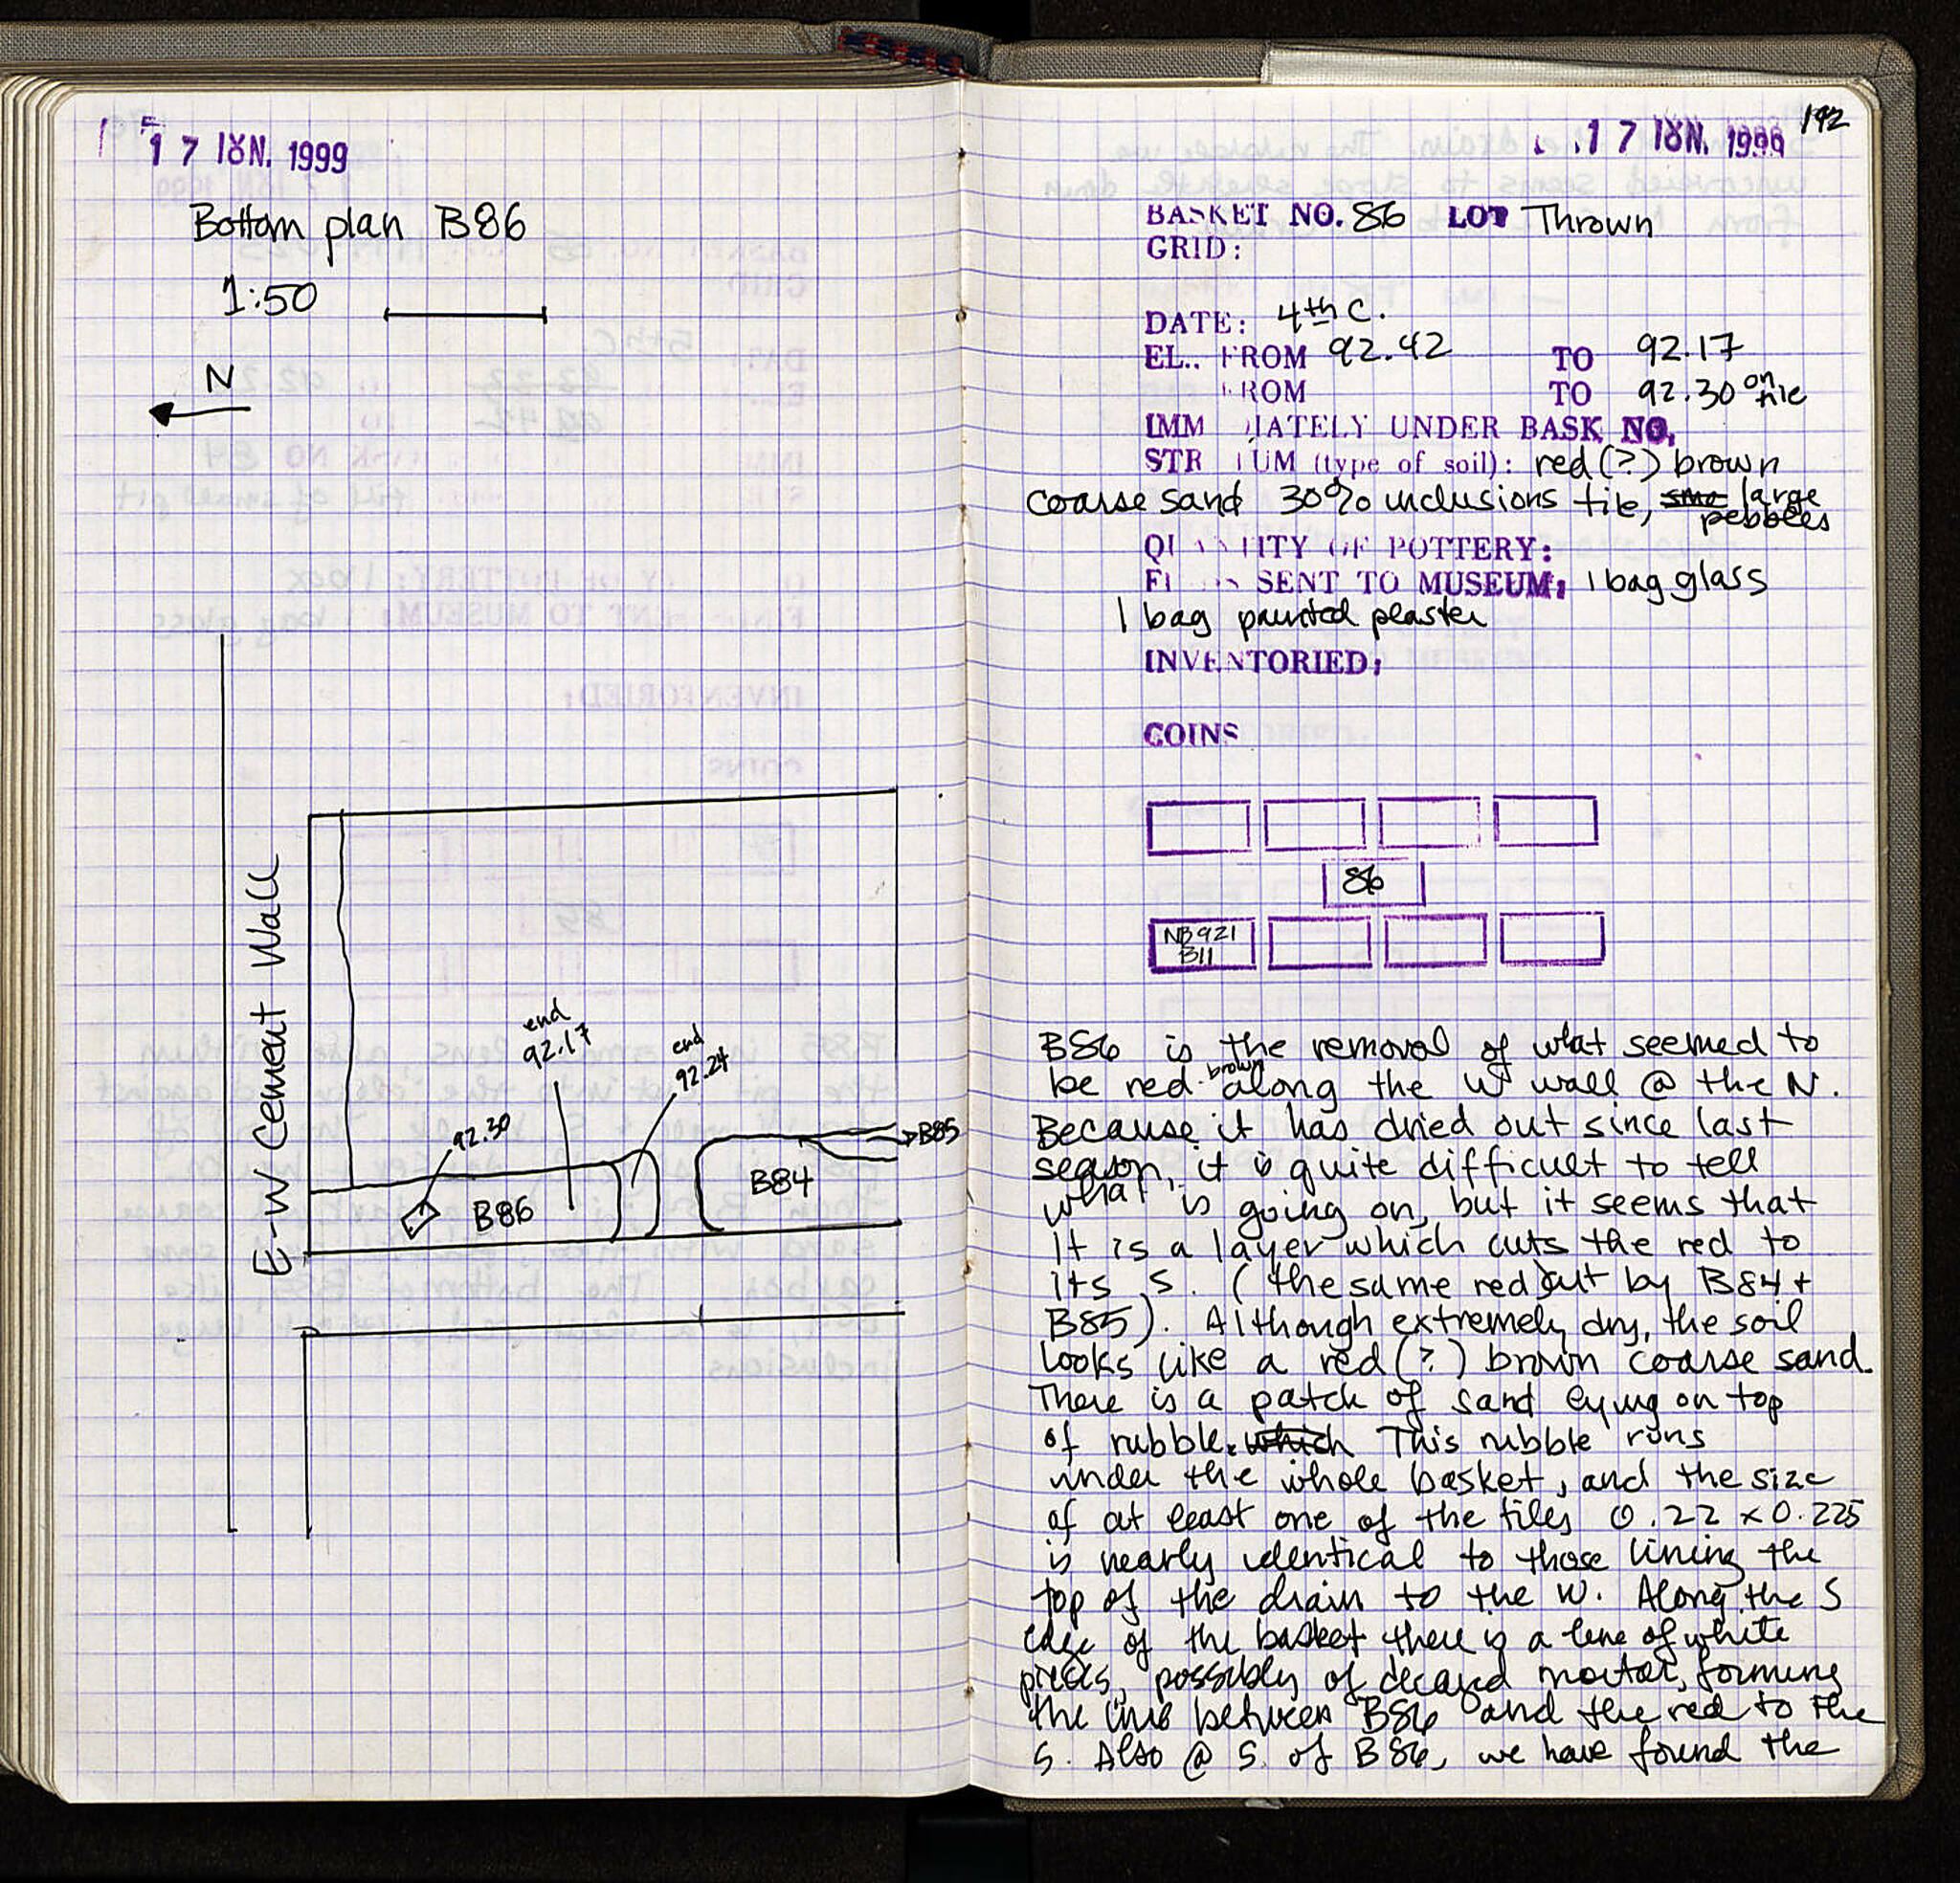 17 IȢN. 1999
Bottom plan B86
1:50
N
E-W Cement Wall
end
92.17
end
92.24
92.30
B86
B84
B85
192
17 IȢN. 1999
BASKET NO. 86 LOT Thrown
GRID:
DATE: 4th C.
EL.. FROM 92.42 TO 92.17
FROM TO 92.30 on tile
IMM IATELY UNDER BASK NO.
STR UM (type of soil): red(?) brown
coarse sand 30% inclusions tile, large
pebbles
QU TITY OF POTTERY:
FI SENT TO MUSEUM: 1 bag glass
1 bag painted plaster
INVENTORIED:
COINS
86
NB921
B11
B86 is the removal of what seemed to
be red brown along the W wall @ the N.
Because it has dried out since last
season, it is quite difficult to tell
what is going on, but it seems that
it is a layer which cuts the red to
its S. (the same red cut by B84+
B85). Although extremely dry, the soil
looks like a red(?) brown coarse sand.
There is a patch of sand lying on top
of rubble. which This rubble runs
under the whole basket, and the size
of at least one of the tiles 0.22 x 0.225
is nearly identical to those lining the
top of the drain to the W. Along the S
edge of the basket there is a line of white
pieces, possibly of decayed mortar, forming
the line between B86 and the red to the
S. Also @ S. of B86, we have found the